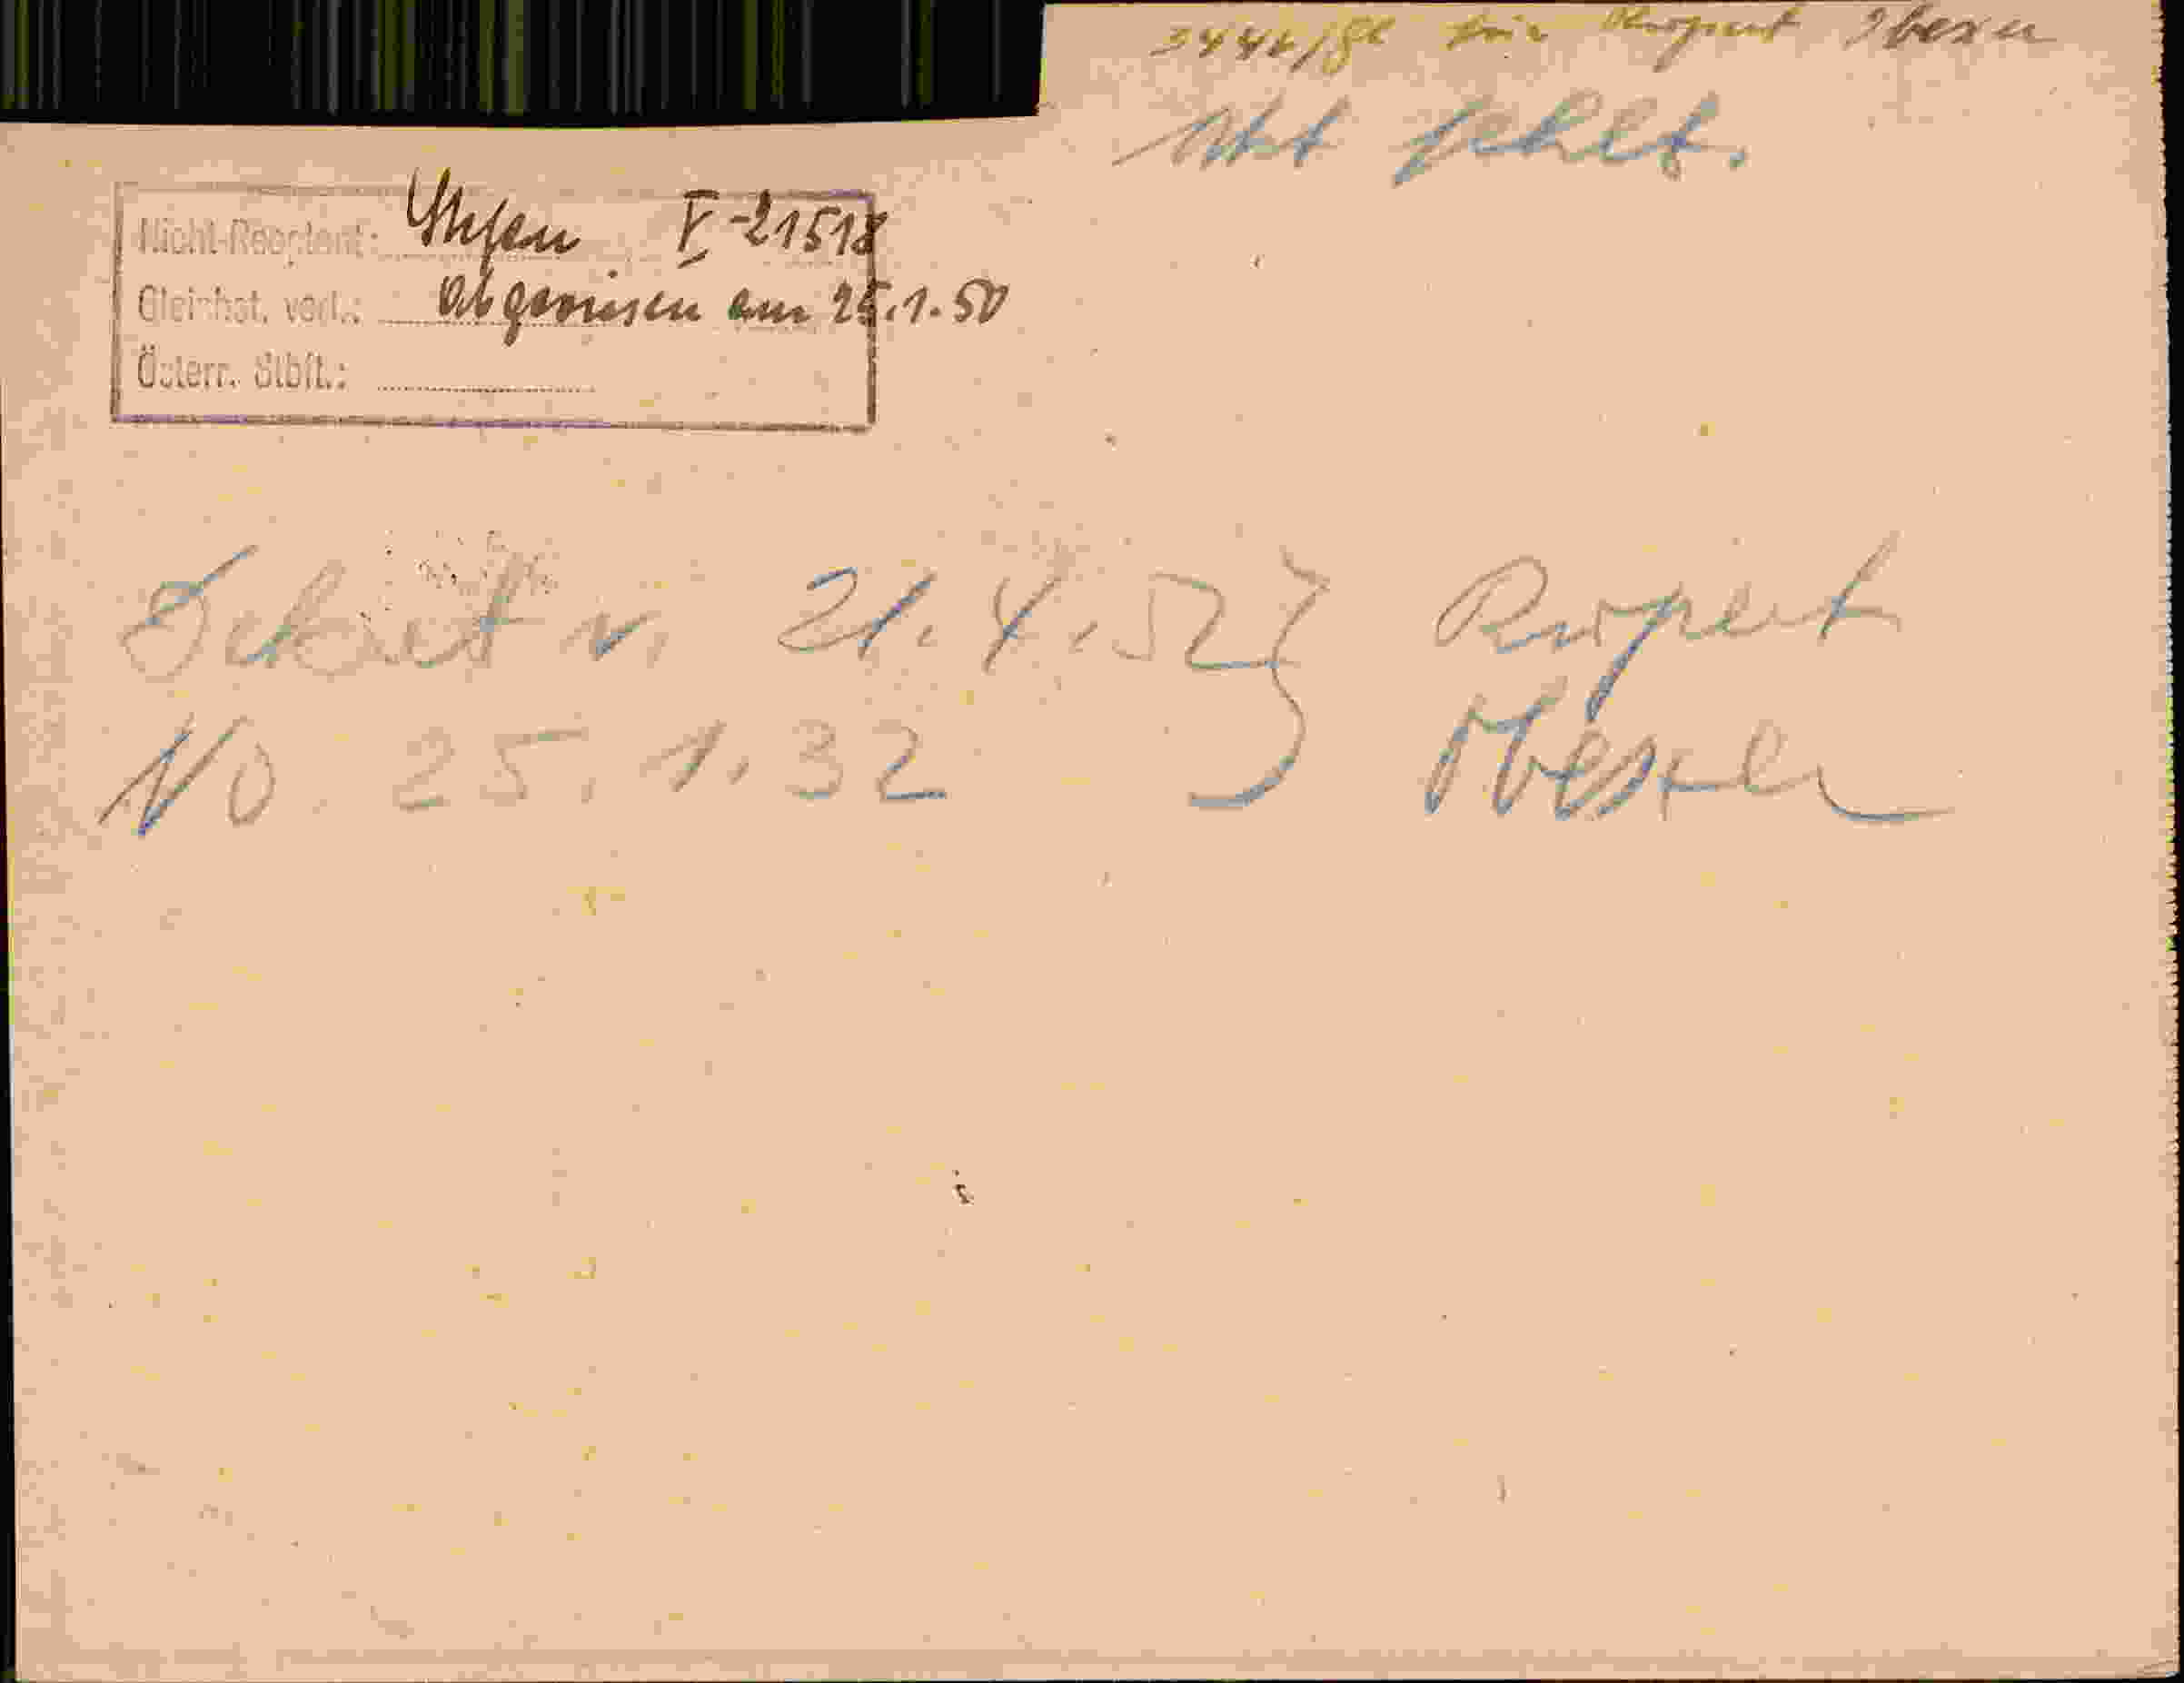 für Rupert Obexer
Akt fehlt.
Nicht-Reoptant: Stefan V-21518
Gleichst. verl.: Abgewiesen am 25.1.50
Österr. Stbft.:
v. 21.4.52 } Rupert
No 25.1.32 Obexer